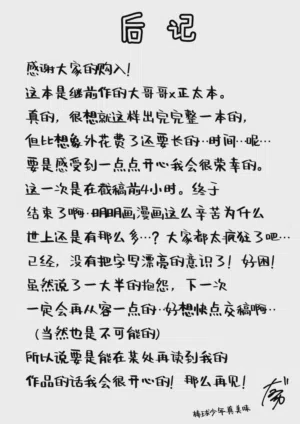 后记
感谢大家的购入!
这本是继前作的大哥哥x正太本。
真的,很想就这样出完完整一本的,
但比想象外花费了还要长的··时间··呢…
要是感受到一点点开心我会很荣幸的。
这一次是在截稿前4小时。终于
结束了啊··明明画漫画这么辛苦为什么
世上还是有那么多…?大家都太疯狂了吧…
已经,没有把字写漂亮的意识了!好困!
虽然说了一大半的抱怨,下一次
一定会再从容一点的··好想快点交稿啊··
(当然也是不可能的)
所以说要是能在某处再读到我的
作品的话我会很开心的!那么再见!
棒球少年真美味